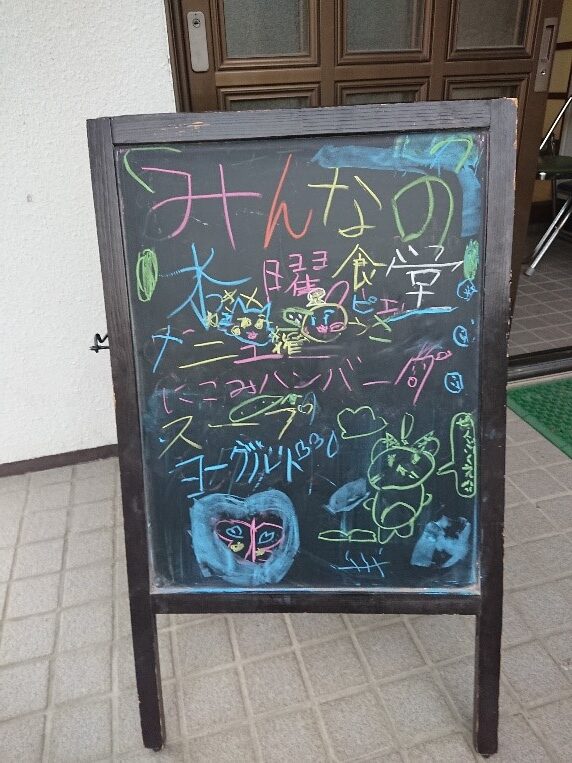 みんなの
水曜食堂
メニュー
にこみハンバーグ
スープ
ヨーグルト